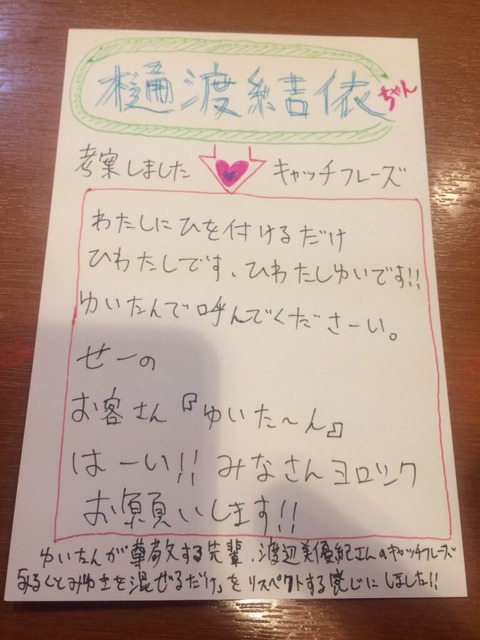 樋渡結依ちゃん
考案しました キャッチフレーズ
わたしにひを付けるだけ
ひわたしです、ひわたしゆいです!!
ゆいたんで呼んでくださーい。
せーの
お客さん『ゆいた〜ん』
はーい!! みなさんヨロツク
お願いします!!
ゆいたんが尊敬する先輩、渡辺美優紀さんのキャッチフレーズ
「みるくとみゆきを混ぜるだけ」をリスペクトする感じにしました!!